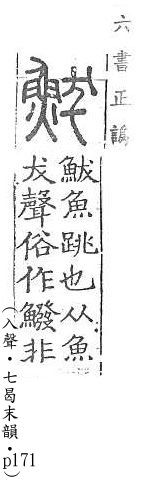 六書正譌
鮁
鮁魚跳也从魚
犮聲俗作鱍非
（入聲・七曷末韻・p171）